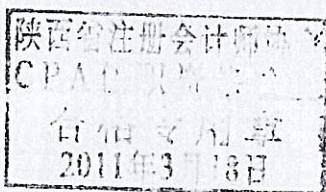 陕西省注册会计师协会
CPA
合格专用章
2011年3月18日